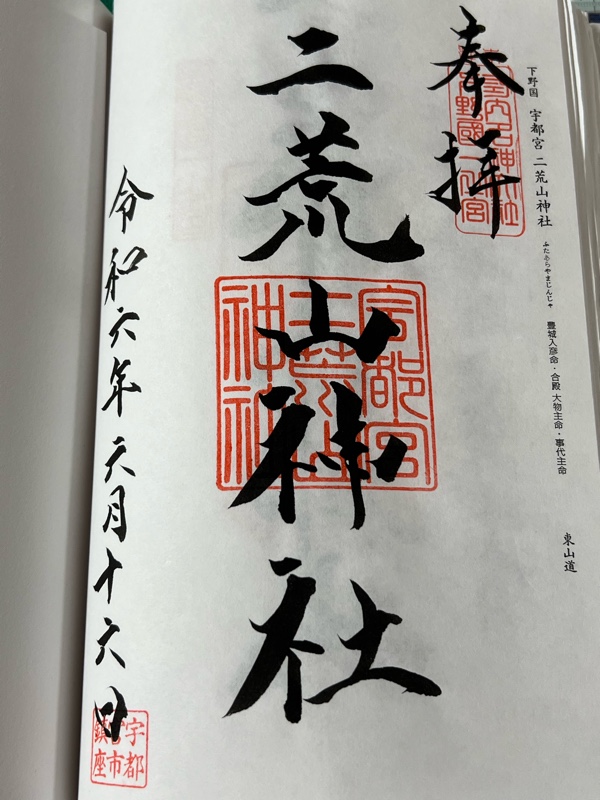 下野国 宇都宮 二荒山神社 ふたあらやまじんじゃ 豊城入彦命・合殿 大物主命・事代主命 東山道
奉拝
二荒山神社
宇都宮
二荒山
神社
令和六年六月十六日
宇都
宮市
鎮座